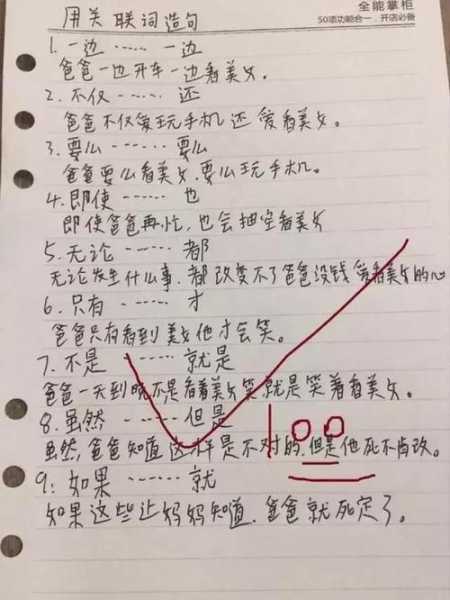 全能掌柜
50项功能合一,开店必备
用关联词造句
1.一边……一边
爸爸一边开车一边看美女。
2.不仅……还
爸爸不仅爱玩手机还爱看美女。
3.要么……要么
爸爸要么看美女,要么玩手机。
4.即使……也
即使爸爸再忙,也会抽空看美女
5.无论……都
无论发生什么事,都改变不了爸爸没钱爱看美女的心
6.只有……才
爸爸只有看到美女他才会笑。
7.不是……就是
爸爸一天到晚不是看着美女笑就是笑着看美女。
8.虽然……但是
虽然,爸爸知道这样是不对的,但是他死不肯改。
100
9:如果……就
如果这些让妈妈知道,爸爸就死定了。